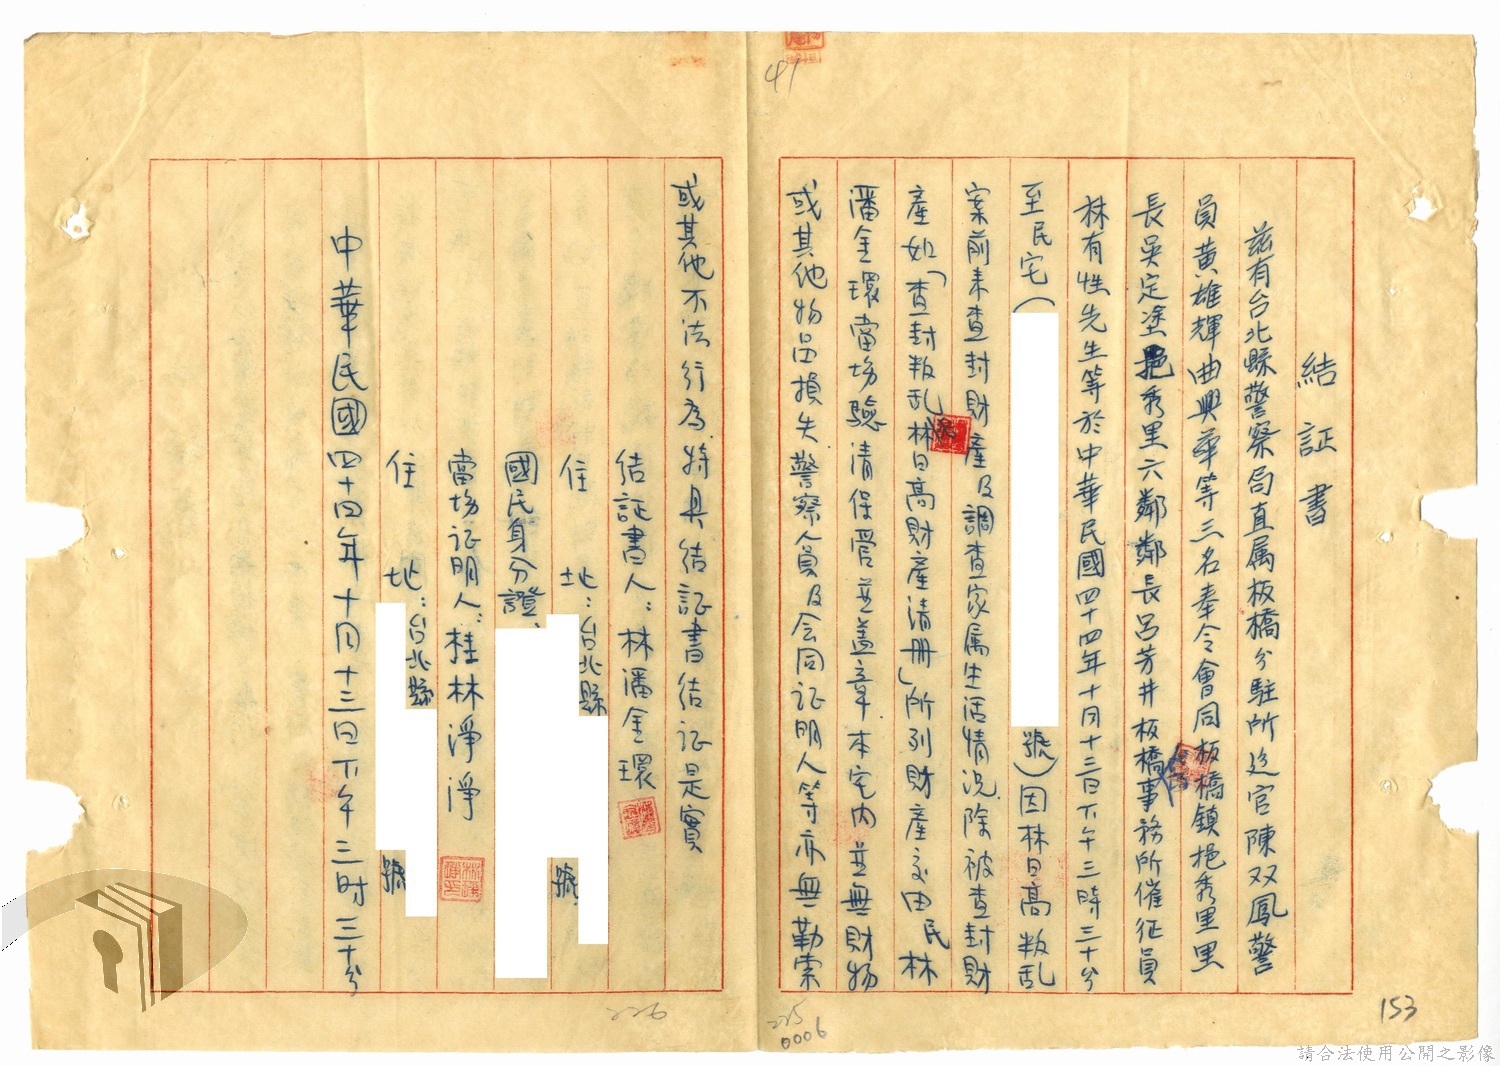 41
結証書
茲有台北縣警察局直属板橋分駐所巡官陳双鳳警
員黃雄輝曲興華等三名奉令會同板橋鎮挹秀里里
長吳定塗挹秀里六鄰鄰長呂芳井板橋事務所催征員
林有性先生等於中華民國四十四年十月十三日下午三時三十分
至民宅(
號)因林日高叛乱
案前来查封財產及調查家属生活情況除被查封財
產如「查封叛乱林日高財產清册」所列財產交由民林
潘金環當場驗清保管並蓋章本宅內並無財物
或其他物品損失警察人員及会同证明人等亦無勒索
或其他不法行為特具結証書结证是實
结証書人：林潘金環
住 地：台北縣
號
國民身分證
當場证明人：桂林淨淨
住 地：台北縣
號
中華民國四十四年十月十三日下午三時三十分
226
225
0006
153
請合法使用公開之影像